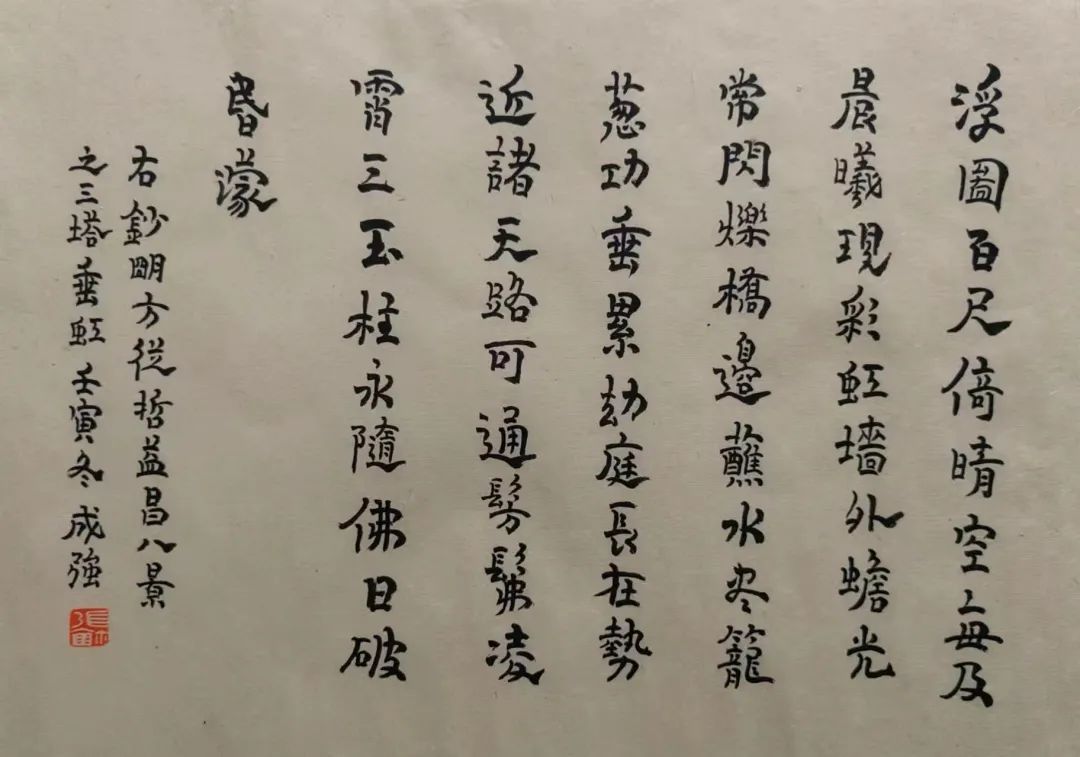 浮圖百尺倚晴空每及
晨曦現彩虹墻外蟾光
常閃爍橋邊蘸水尽籠
葱功垂累劫庭長在勢
近諸天路可通髣髴凌
霄三玉柱永隨佛日破
昬濛
右鈔明方従哲益昌八景
之三塔垂虹壬寅冬成強